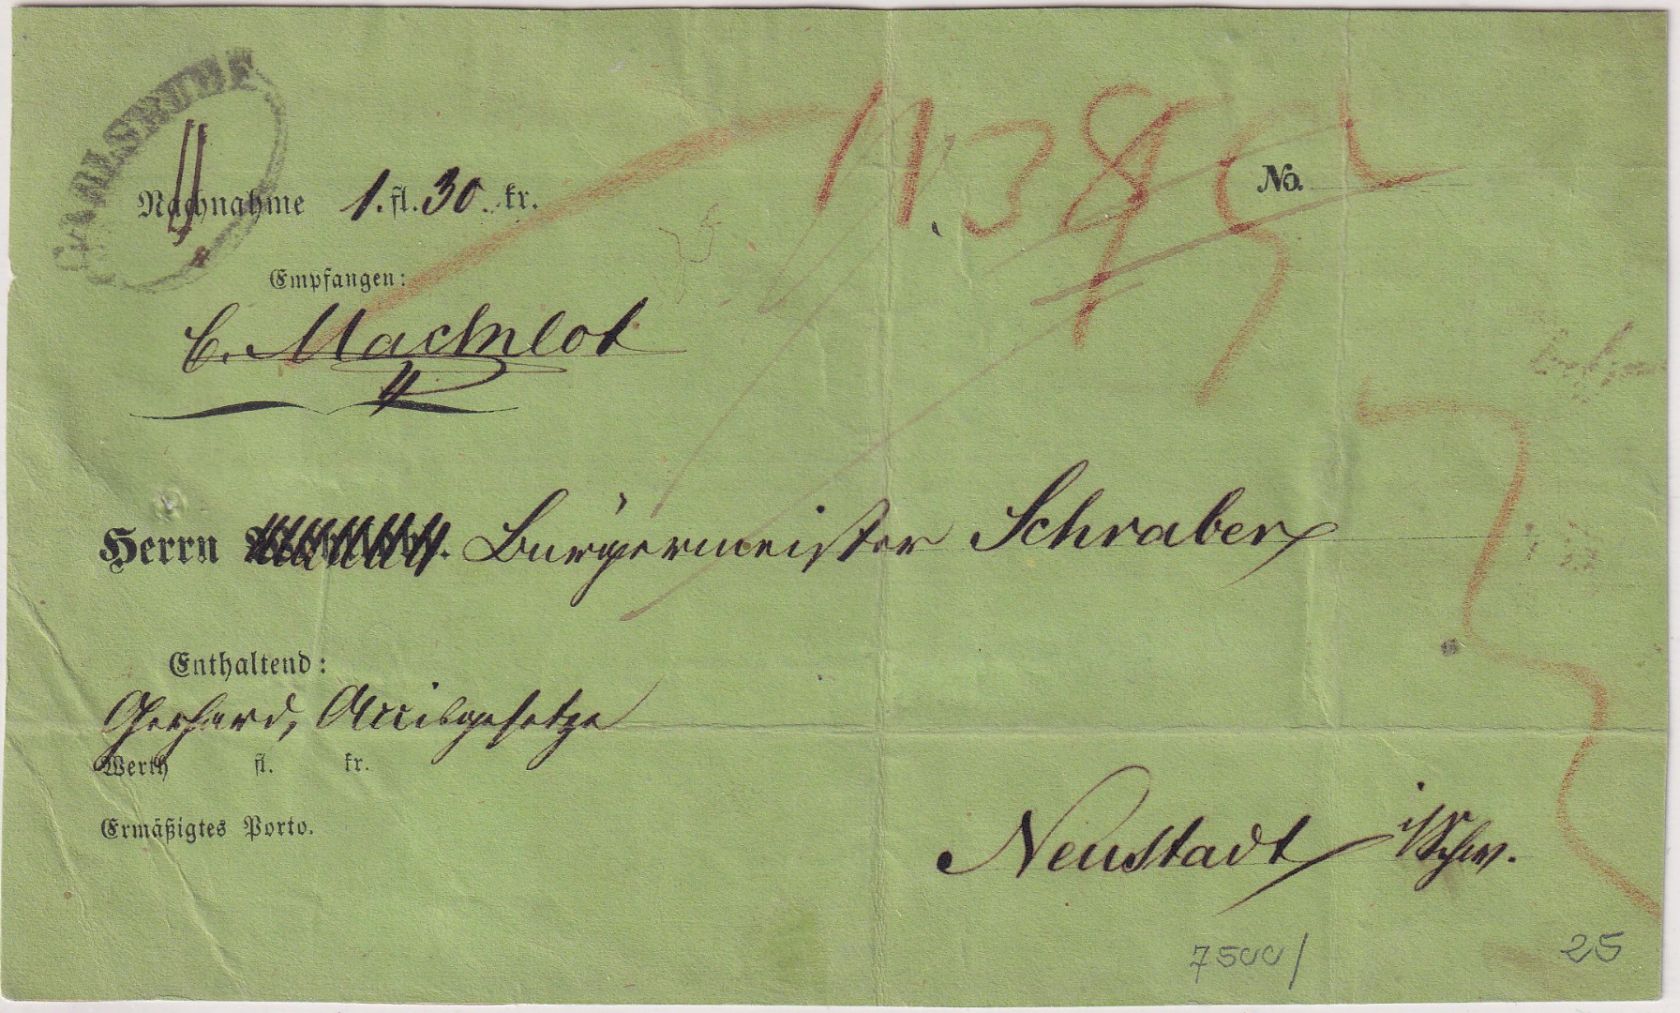 CARLSRUHE
Nachnahme 1. fl. 30. kr.
No.
Empfangen:
C. Macklot
Herrn Bürgermeister Schraber
Enthaltend:
Gerhard, Accisgesetze
Werth fl. kr.
Ermäßigtes Porto.
Neustadt i/Schw.
7500/ 25